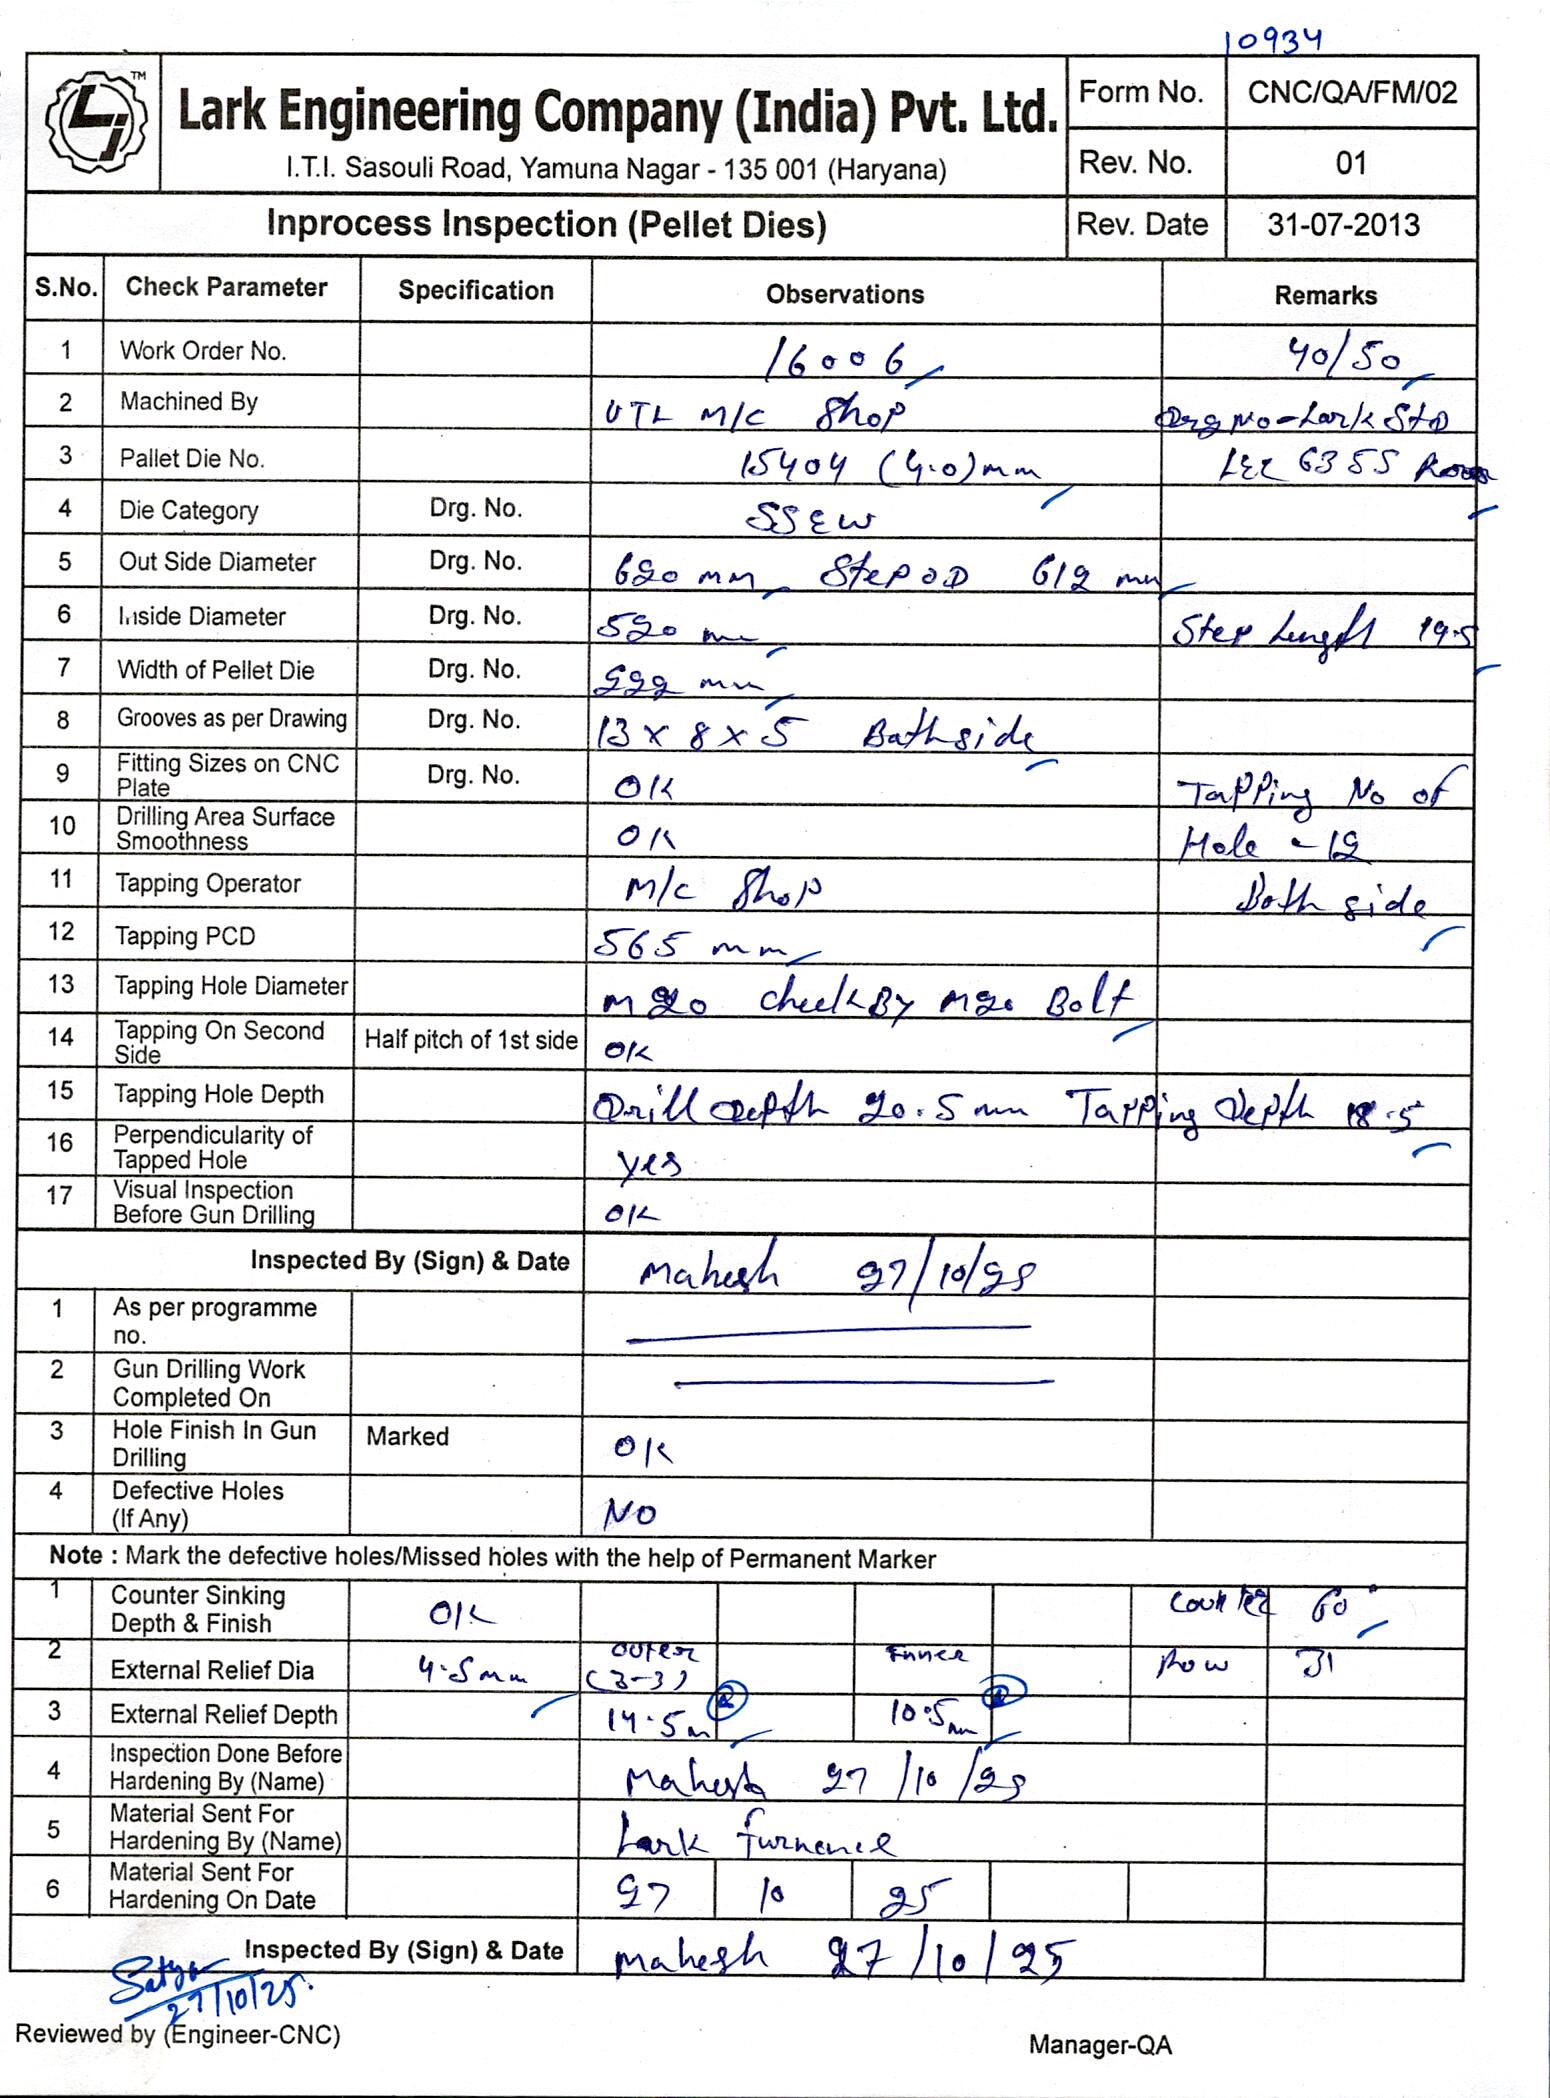 10934
TM
Lark Engineering Company (India) Pvt. Ltd.
I.T.I. Sasouli Road, Yamuna Nagar - 135 001 (Haryana)
Form No. CNC/QA/FM/02
Rev. No. 01
Inprocess Inspection (Pellet Dies)
Rev. Date 31-07-2013
S.No. Check Parameter Specification Observations Remarks
1 Work Order No. 16006 40/50
2 Machined By VTL M/C Shop Drg No-Lark Std
3 Pallet Die No. 15404 (4.0)mm 6355
4 Die Category Drg. No. SSEW
5 Out Side Diameter Drg. No. 620 mm Step OD 612 mm
6 Inside Diameter Drg. No. 520 mm Step Length 19.5
7 Width of Pellet Die Drg. No. 222 mm
8 Grooves as per Drawing Drg. No. 13 x 8 x 5 Bathside
9 Fitting Sizes on CNC Plate Drg. No. OK Tapping No of
10 Drilling Area Surface Smoothness OK Hole - 12
11 Tapping Operator M/C Shop Both side
12 Tapping PCD 565 mm
13 Tapping Hole Diameter M20 check By M20 Bolt
14 Tapping On Second Side Half pitch of 1st side OK
15 Tapping Hole Depth Drill Depth 20.5 mm Tapping Depth 18.5
16 Perpendicularity of Tapped Hole yes
17 Visual Inspection Before Gun Drilling OK
Inspected By (Sign) & Date Mahesh 27/10/25
1 As per programme no.
2 Gun Drilling Work Completed On
3 Hole Finish In Gun Drilling Marked OK
4 Defective Holes (If Any) NO
Note : Mark the defective holes/Missed holes with the help of Permanent Marker
1 Counter Sinking Depth & Finish OK Counter 60°
2 External Relief Dia 4.5mm outer (3-3) Inner Row 31
3 External Relief Depth 14.5m 10.5mm
4 Inspection Done Before Hardening By (Name) Mahesh 27/10/25
5 Material Sent For Hardening By (Name) Lark furnance
6 Material Sent For Hardening On Date 27 10 25
Inspected By (Sign) & Date Mahesh 27/10/25
Satya
27/10/25.
Reviewed by (Engineer-CNC)
Manager-QA